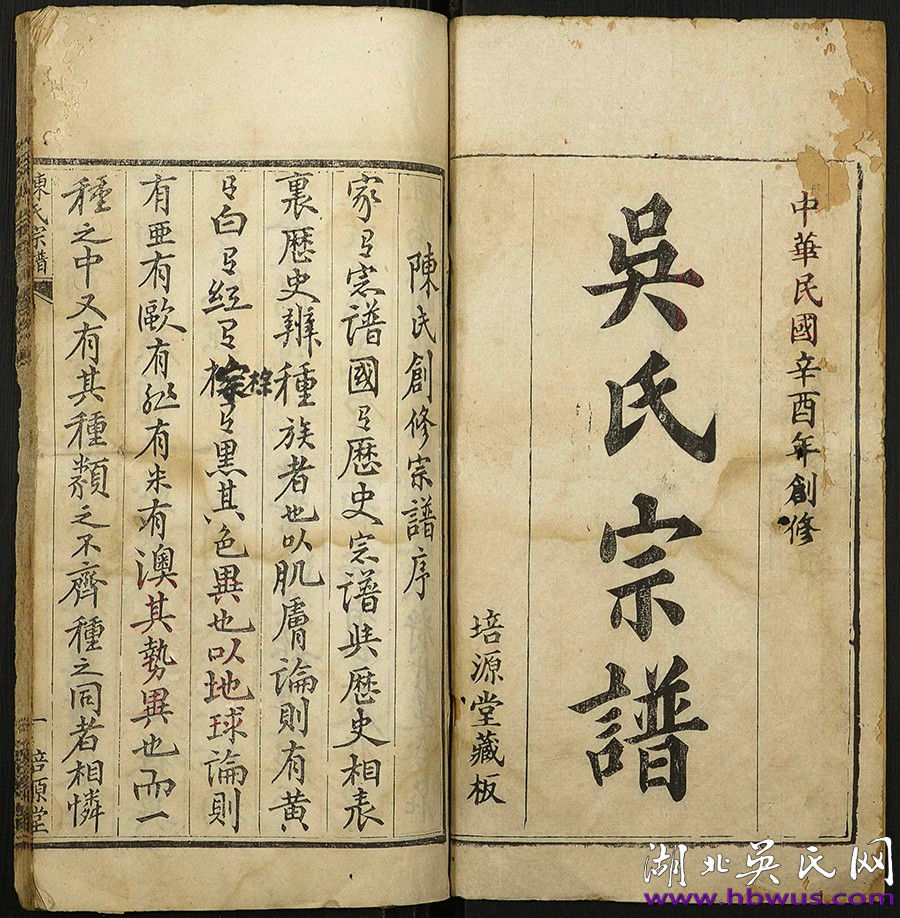 中華民國辛酉年創修
吳氏宗譜
培源堂藏板
陳氏創修宗譜序
家有宗譜國有歷史宗譜與歷史相表
裏歷史辨種族者也以肌膚論則有黃
有白有紅有棕有黑其色異也以地球論則
棕
有亜有歐有非有米有澳其勢異也而一
種之中又有其種類之不齊種之同者相憐
陳氏宗譜
一 培源堂
湖北吳氏网
www.hbwus.com